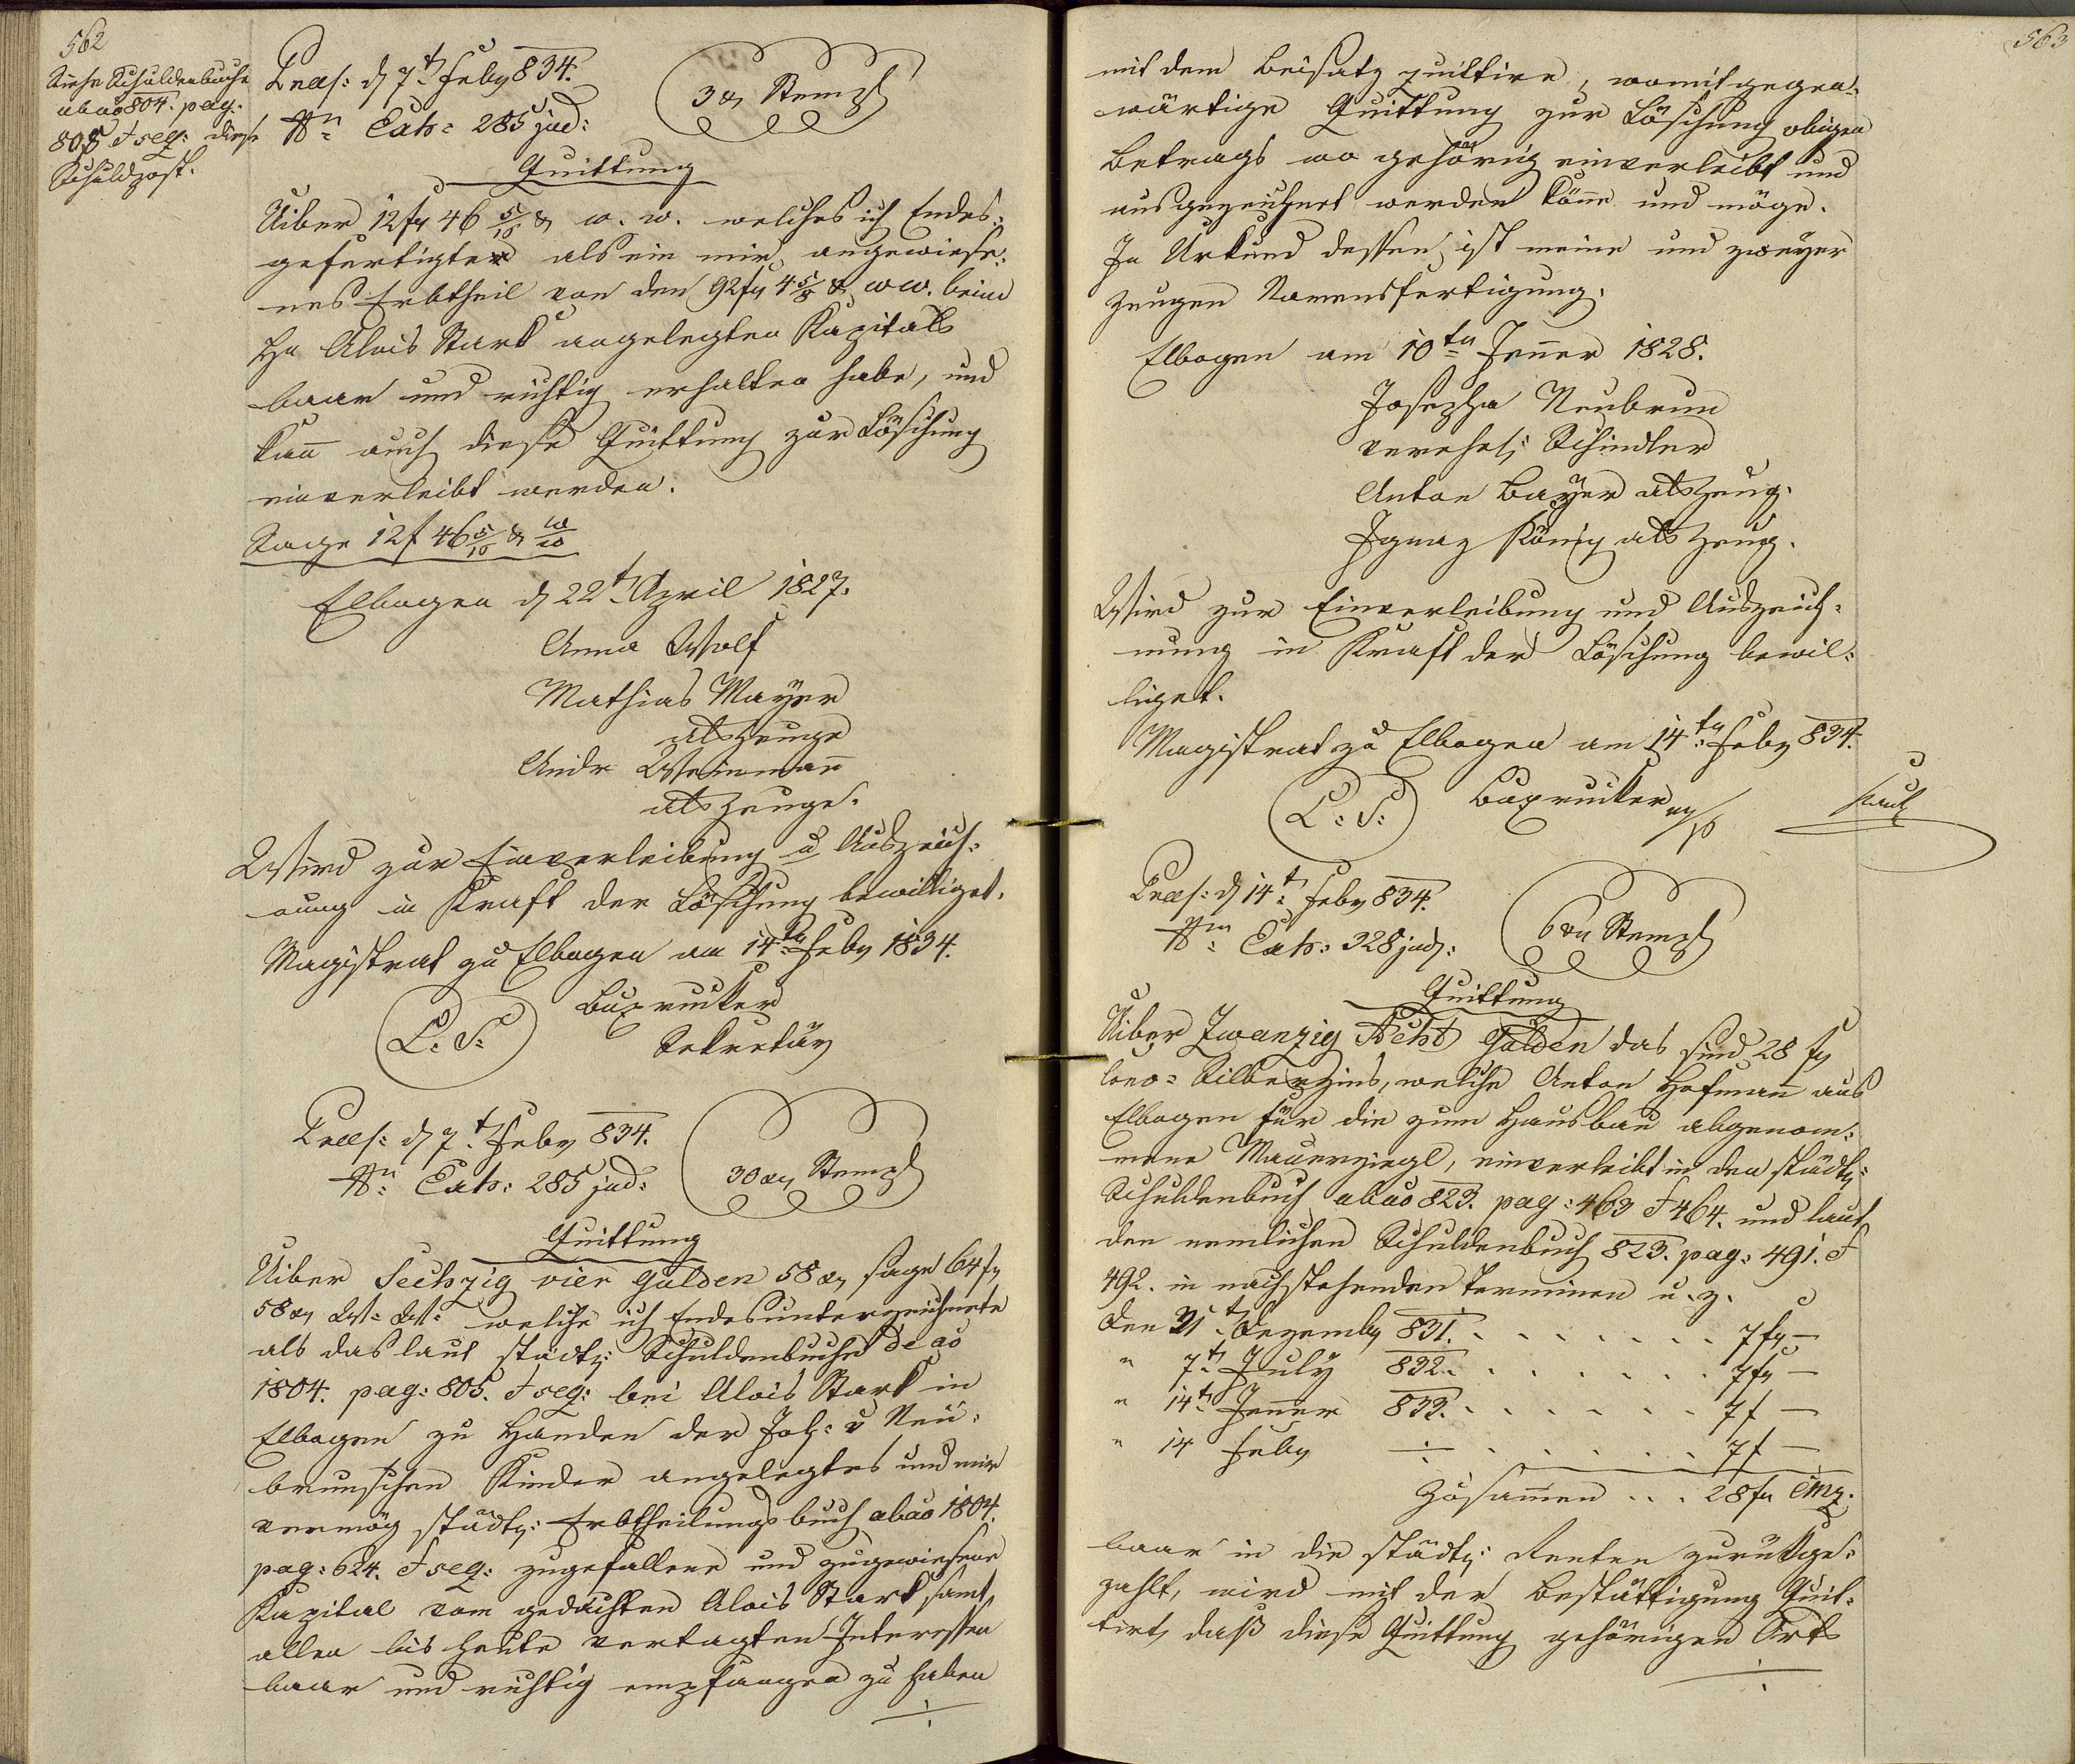 562
Siehe Schuldenbuche
ab ao 804. pag.
805 & seq: diese
Schuldpost.
Praes: d 7t Feby 834.
Nn Exh: 285 jud:
3 x Stempl
Quittung
Uiber 12 fr 46 5/10 x w. w. welches ich Endes-
gefertigter als ein mir angewiese-
nes Erbtheil von den 92 fr 4 5/8 x w w. beim
Hn Alois Stark angelegten Kapitals
baar und richtig erhalten habe, und
kann auch diese Quittung zur Löschung
einverleibt werden.
Sage 12 f 46 5/10 x w w
Elbogen d 22t April 1827.
Anna Wolf
Mathias Mayer
als Zeuge
Andr Weinmann
als Zeuge.
Wird zur Einverleibung u Auszeich-
nung in Kraft der Löschung bewilliget.
Magistrat zu Elbogen am 14tn Feby 1834.
L: S:
Buxruker
Sekretär
Praes: d 7t Feby 834.
Nn Exh: 285 jud:
30 xr Stempl
Quittung
Uiber Sechzig vier Gulden 58 xr sage 64 fr
58 xr W: W: welche ich Endesunterzeichnete
als das laut städt: Schuldenbuche de ao
1804. pag: 805. & seq: bei Alois Stark in
Elbogen zu Handen der Joh: v Neu-
brunschen Kinder angelegtes und mir
vermög städt: Erbtheilungsbuch ab ao 1804.
pag: 624. & seq: zugefallene und zugewiesene
Kapital vom gedachten Alois Stark samt
allen bis heute vertagten Interessen
baar und richtig empfangen zu haben
÷
563
mit dem Beisatz quittire, womit gegen-
wärtige Quittung zur Löschung obigen
Betrags wo gehörig einverleibt und
ausgezeichnet werden könne und möge.
In Urkund dessen ist meine und zweyer
Zeugen Namensfertigung.
Elbogen am 10tn Jenner 1828.
Josepha Neubrun
verehel: Schindler
Anton Bayer als Zeug.
Ignaz König als Zeug.
Wird zur Einverleibung und Auszeich-
nung in Kraft der Löschung bewil-
liget.
Magistrat zu Elbogen am 14tn Feby 834.
L: S:
Buxruker m/p
Praes: d 14t Feby 834.
Nn Exh: 328 jud:
6 xr Stempl
Quittung
Uiber Zwanzig Acht Gulden das sind 28 fr
Conv: Silberzins, welche Anton Hofmann aus
Elbogen für die zum Hausbau abgenom-
mene Mauerziegl, einverleibt in den städt:
Schuldenbuch ab ao 823. pag: 463 & 464. und laut
den nemlichen Schuldenbuch 823. pag: 491. &
492. in nachstehenden Terminen u. z.
Den 31t Dezemb 831. . . . . . . . 7 fr —
" 7t July 832. . . . . . . . 7 fr —
" 14t Jenner 833. . . . . . . 7 f —
" 14 Feby ÷ . . . . . . 7 f —
Zusammen . . . 28 fr CMz.
baar in die städt: Renten zurückge-
zahlt, wird mit der Bestättigung quit-
tirt, daß diese Quittung gehörigen Orts
÷